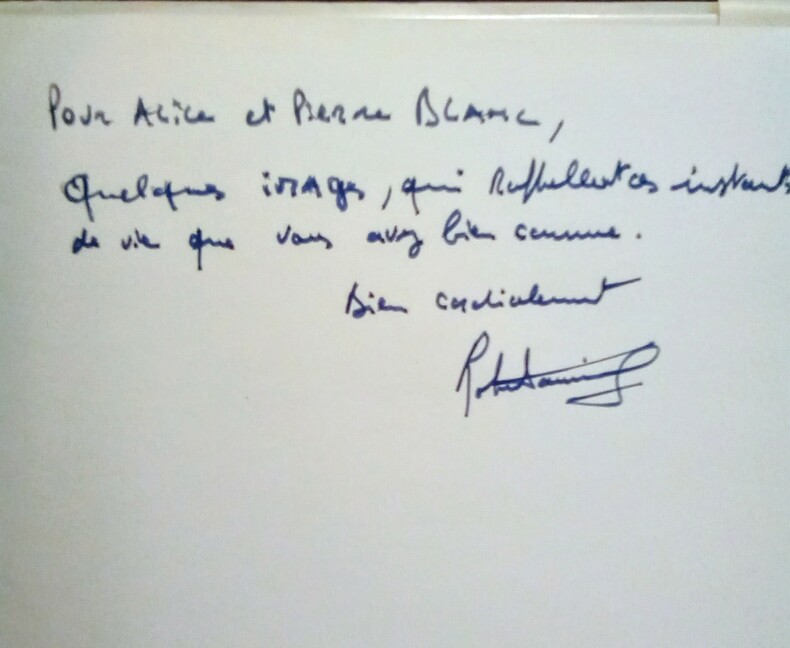 Pour Alice et Pierre BLANC,
Quelques images, qui Rappellent ces instants
de vie que vous avez bien connue.
Bien cordialement